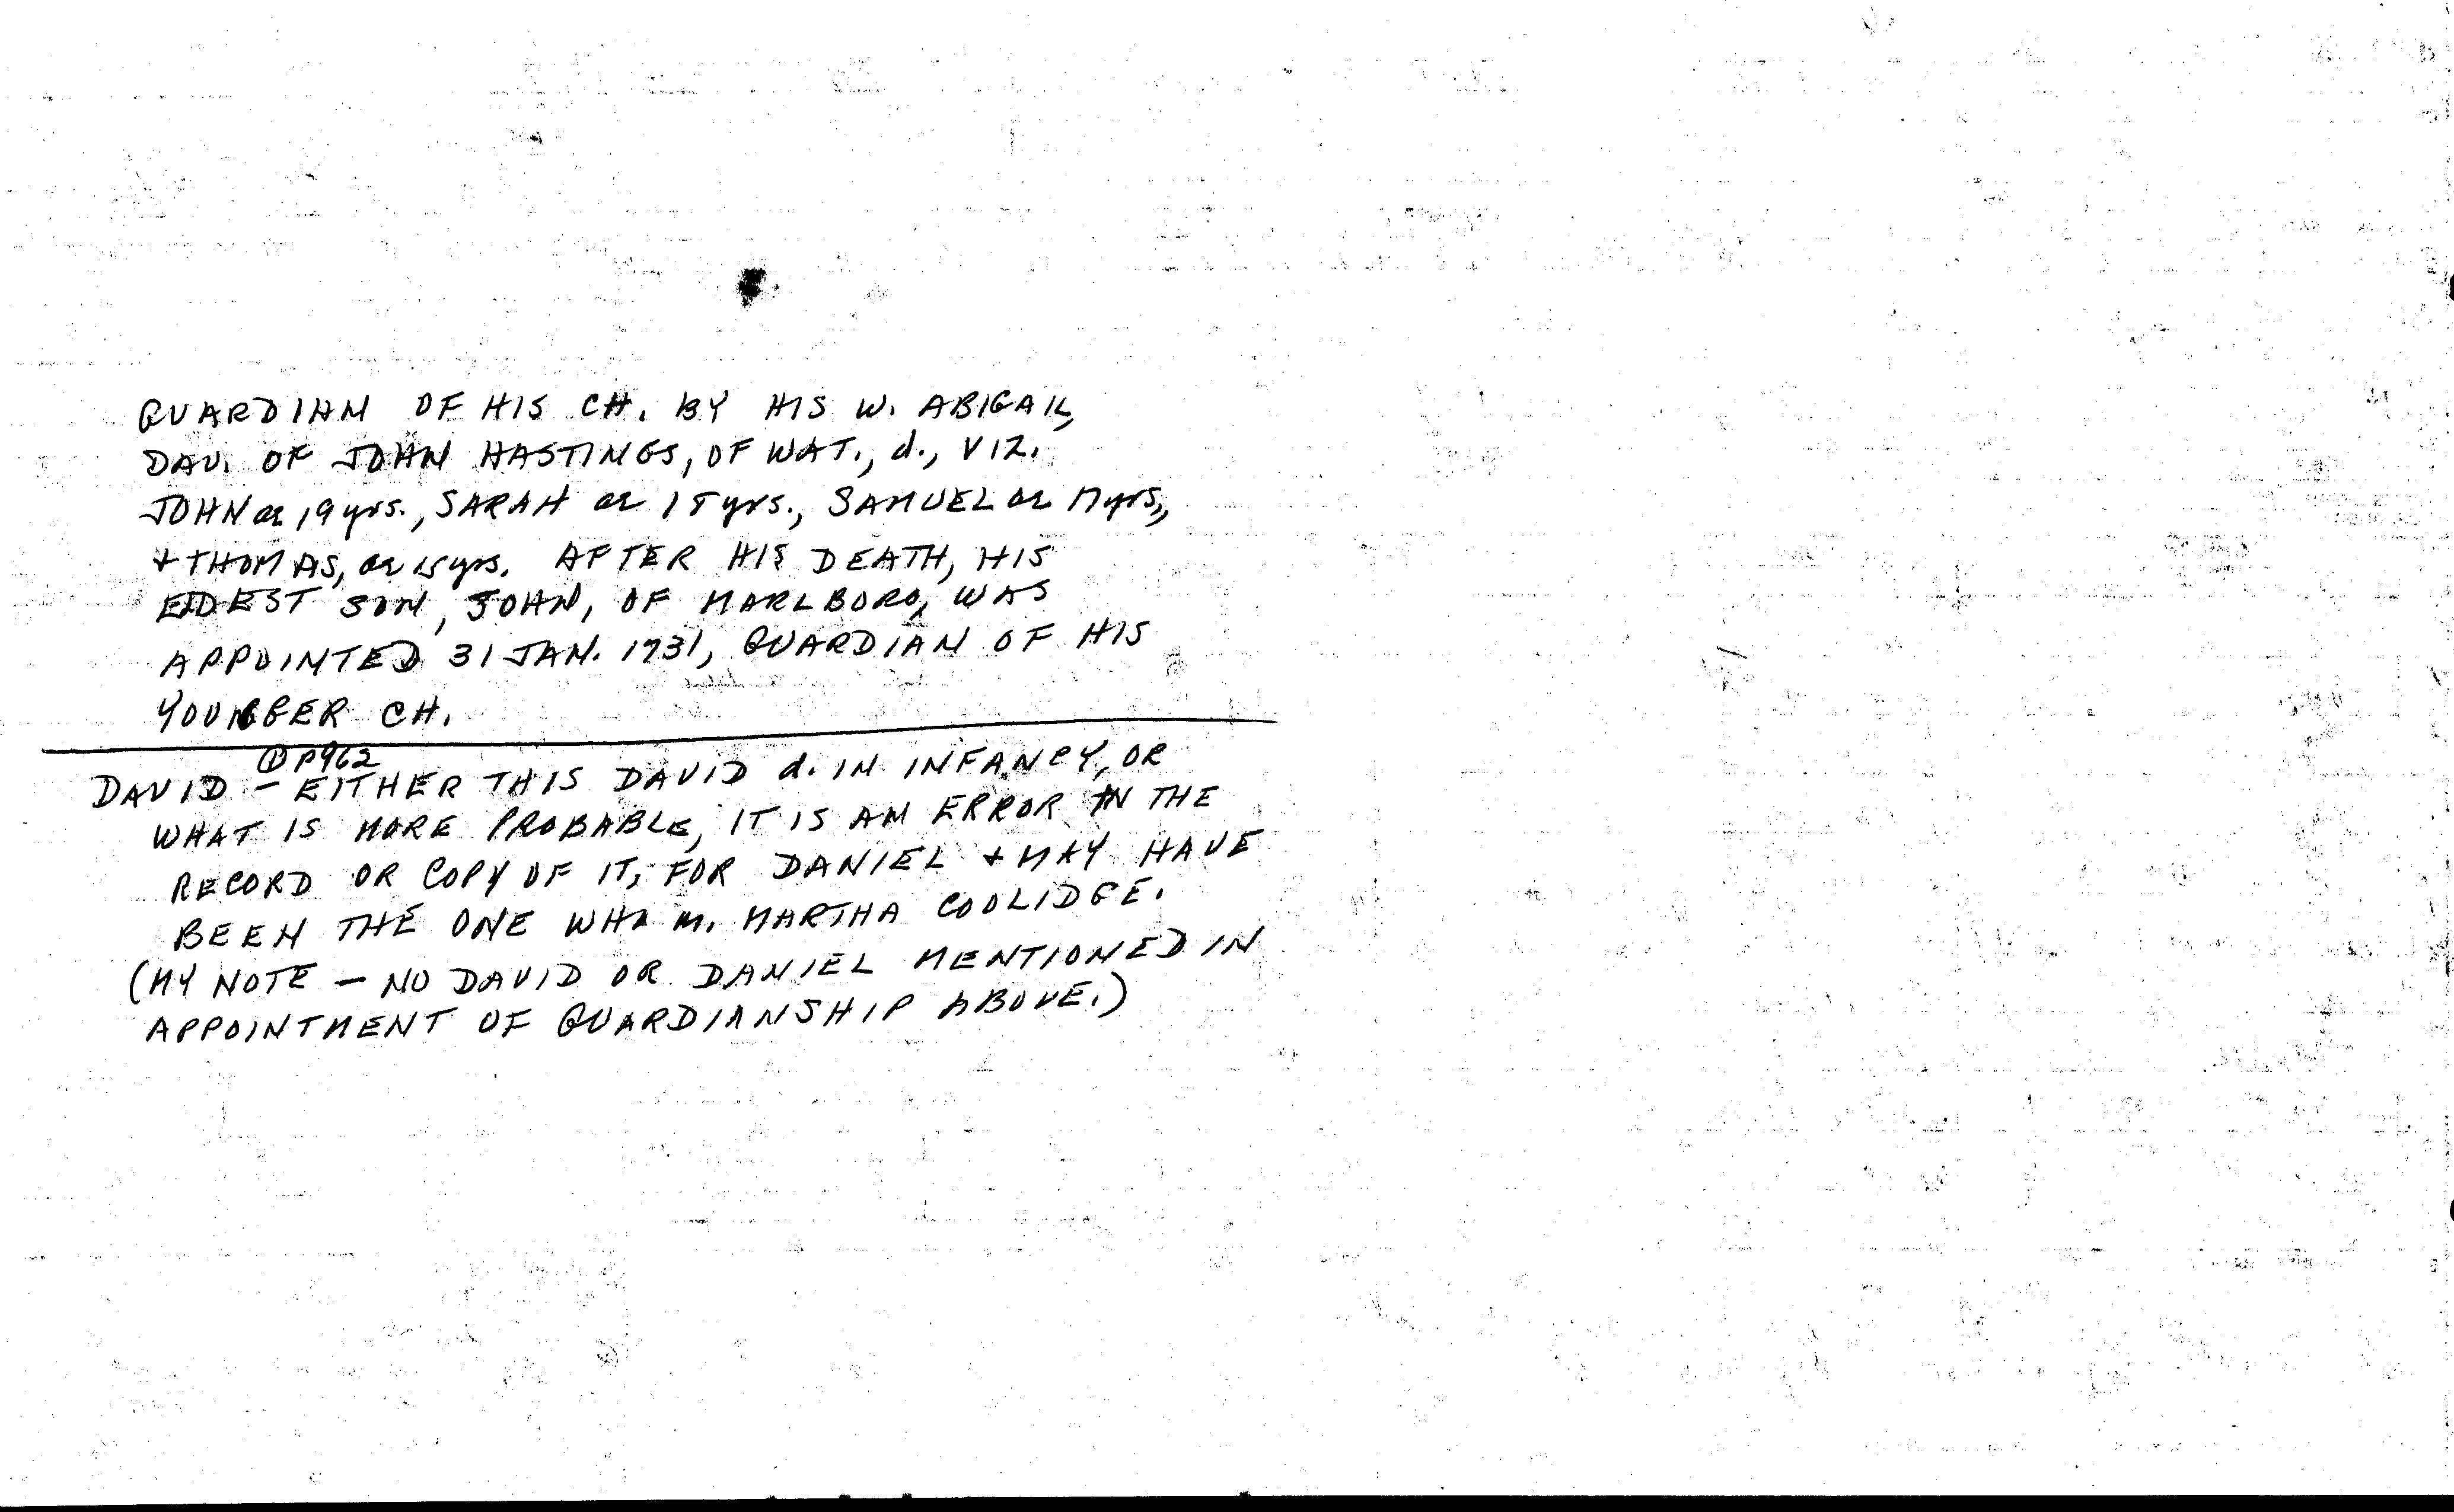 GUARDIAN OF HIS CH. BY HIS W. ABIGAIL,
DAU. OF JOHN HASTINGS, OF WAT., d., VIZ.
JOHN æ 19 yrs., SARAH æ 18 yrs., SAMUEL æ 17 yrs.,
+ THOMAS, æ 15 yrs. AFTER HIS DEATH, HIS
ELDEST SON, JOHN, OF MARLBORO, WAS
APPOINTED 31 JAN. 1731, GUARDIAN OF HIS
YOUNGER CH.
① P962
DAVID - EITHER THIS DAVID d. IN INFANCY, OR
WHAT IS MORE PROBABLE, IT IS AN ERROR IN THE
RECORD OR COPY OF IT, FOR DANIEL + MAY HAVE
BEEN THE ONE WHO m. MARTHA COOLIDGE.
(MY NOTE - NO DAVID OR DANIEL MENTIONED IN
APPOINTMENT OF GUARDIANSHIP ABOVE.)